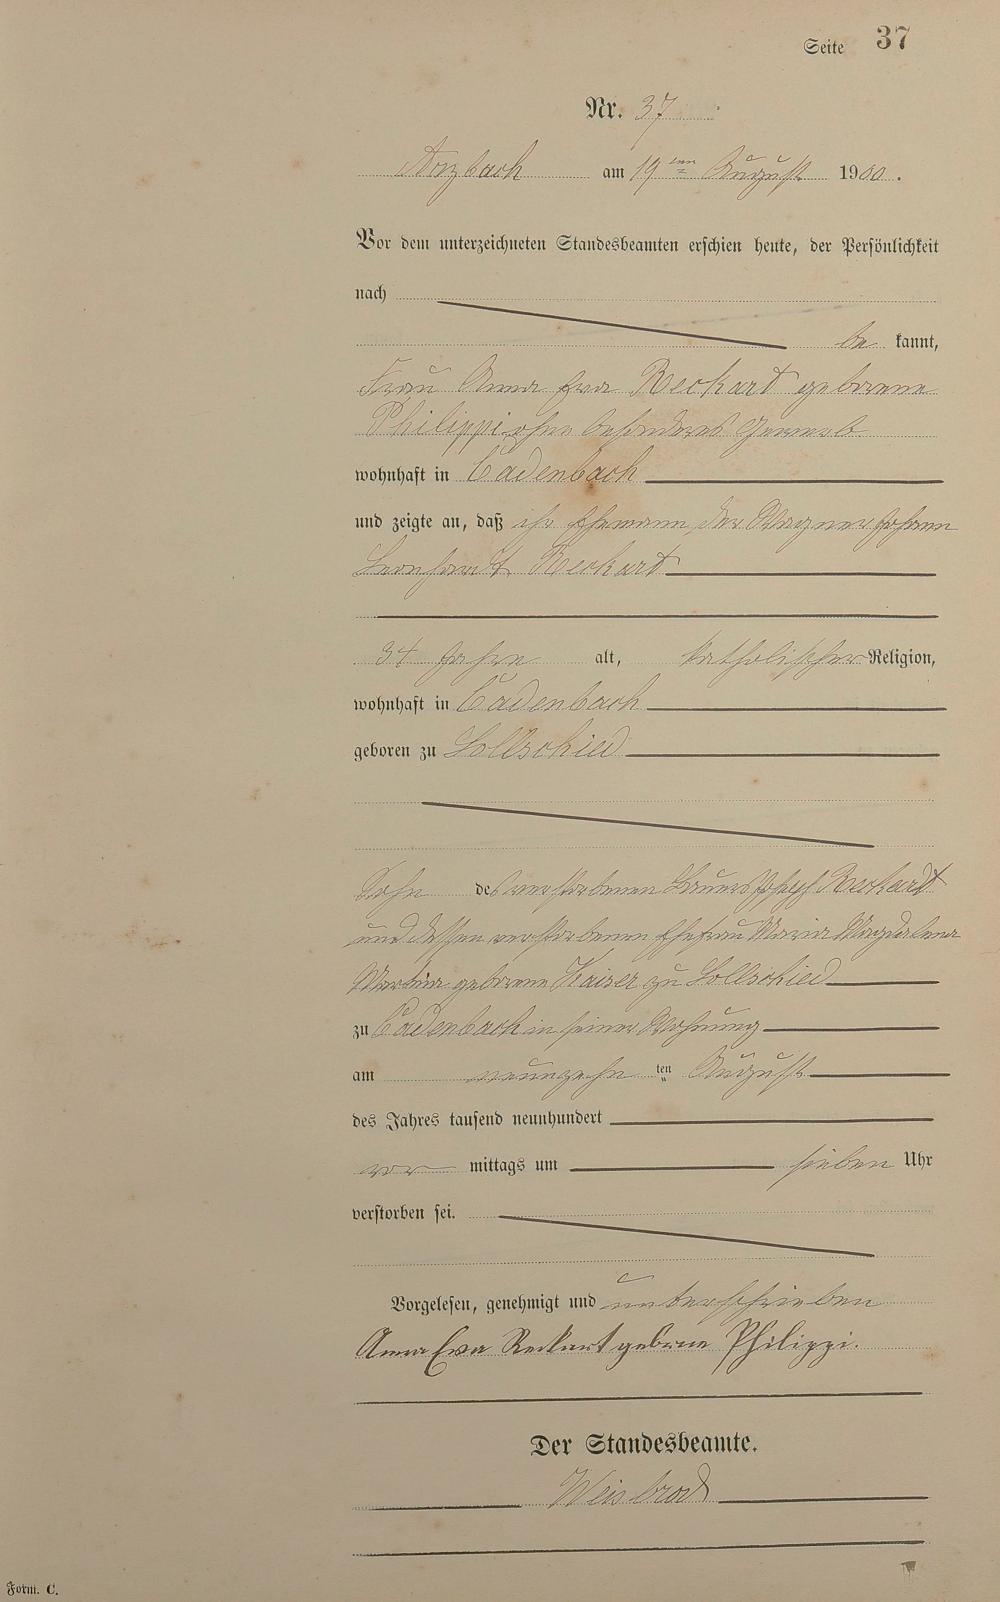 Seite 37
Nr. 37
Arzbach am 19ten August 1900.
Vor dem unterzeichneten Standesbeamten erschien heute, der Persönlichkeit
nach
be kannt,
Frau Anna Eva Reckart geborene
Philippi ohne besonderes Gewerb
wohnhaft in Cadenbach
und zeigte an, daß ihr Ehemann, der Wagner Johann
Leonhardt Reckart
34 Jahre alt, katholischer Religion,
wohnhaft in Cadenbach
geboren zu Lollschied
Sohn des verstorbenen Bauers Joseph Reckardt
und dessen verstorbenen Ehefrau Maria Magdalena
Martha geborene Kaiser zu Lollschied
zu Cadenbach in seiner Wohnung
am neunzehn ten August
des Jahres tausend neunhundert
vor mittags um sieben Uhr
verstorben sei.
Vorgelesen, genehmigt und unterschrieben
Anna Eva Reckart geborne Philippi.
Der Standesbeamte.
Weisbrod
Form. C.